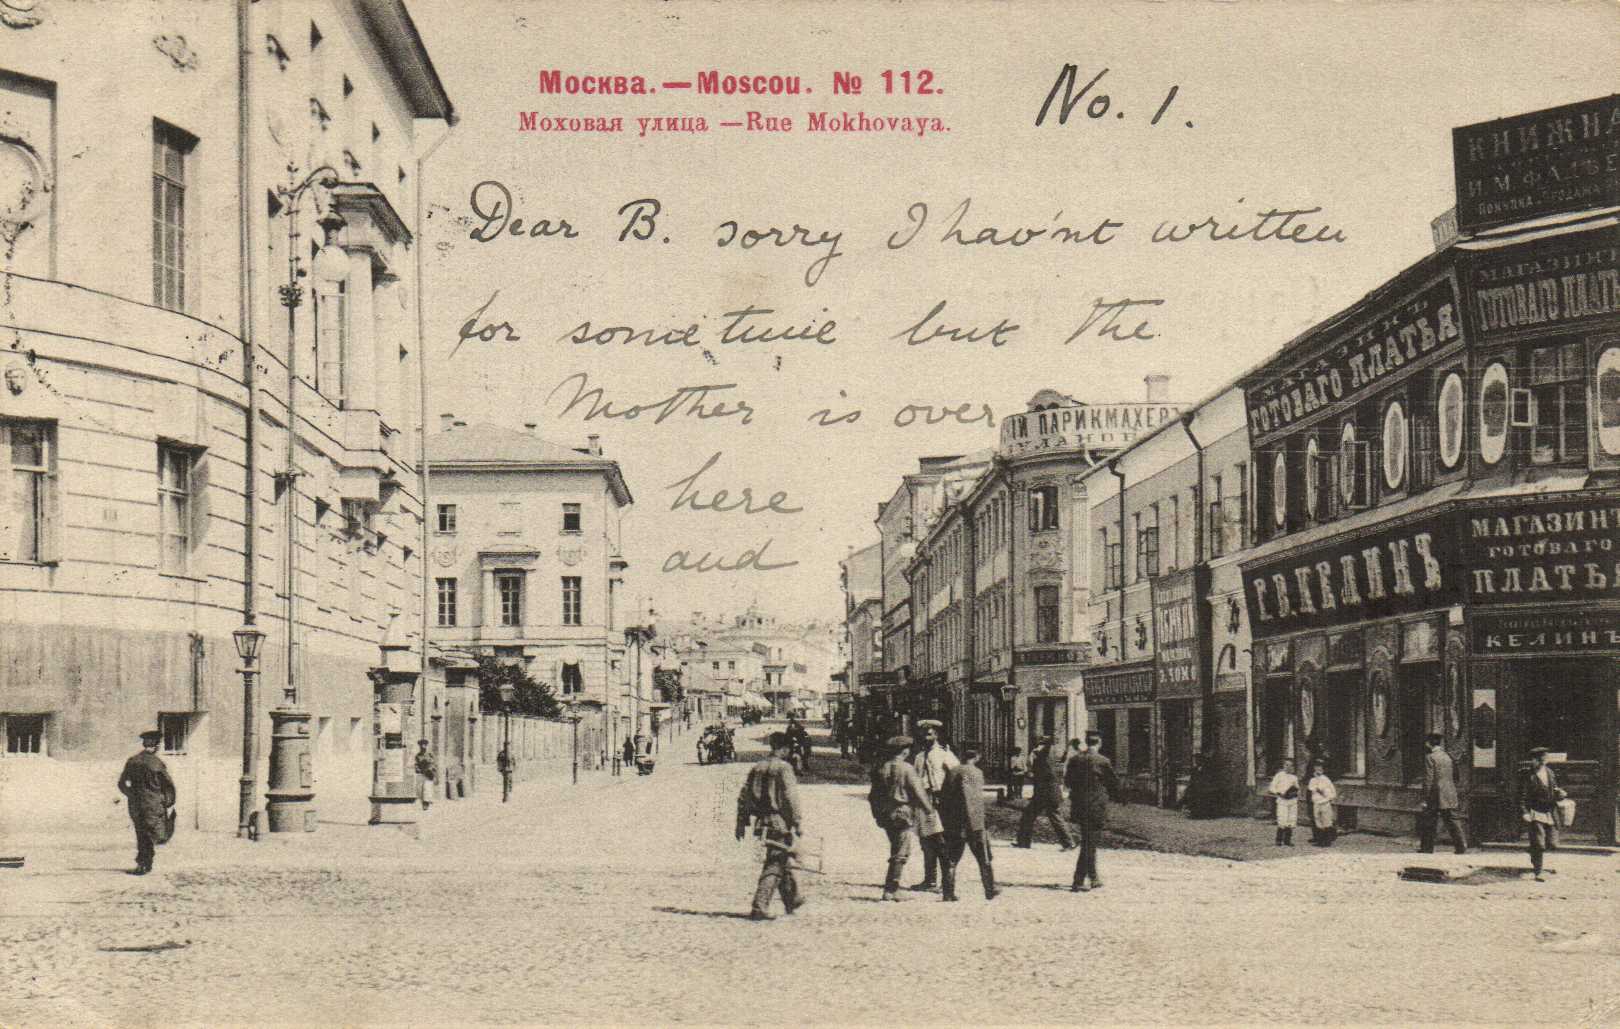 Москва.—Moscou. № 112.
Моховая улица —Rue Mokhovaya.
No. 1.
Dear B. sorry I hav'nt written
for some time but the
Mother is over
here
and
КНИЖНА
И.М.ФАДѢЕ
ПОКУПКА ПРОДАЖА
МАГАЗИНЪ
ГОТОВАГО ПЛАТЬЯ
МАГАЗИНЪ
ГОТОВАГО ПЛАТЬ
ПАРИКМАХЕРЪ
Г.В.КЕЛИНЪ
МАГАЗИНЪ
ГОТОВАГО
ПЛАТЬЯ
КЕЛИНЪ